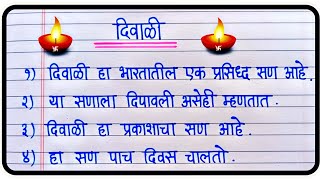 दिवाळी
१) दिवाळी हा भारतातील एक प्रसिध्द सण आहे.
२) या सणाला दिपावली असेही म्हणतात.
३) दिवाळी हा प्रकाशाचा सण आहे.
४) हा सण पाच दिवस चालतो.